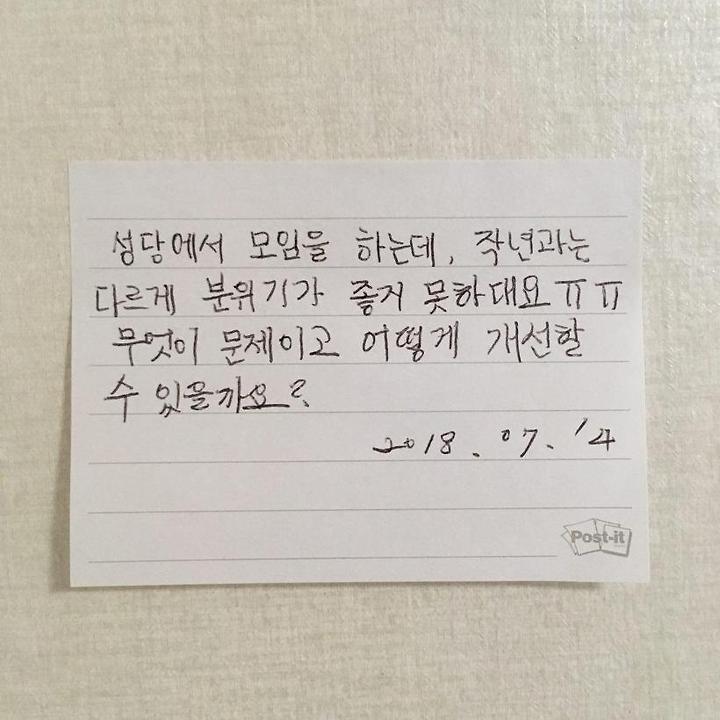 성당에서 모임을 하는데, 작년과는
다르게 분위기가 좋지 못하대요 ㅠㅠ
무엇이 문제이고 어떻게 개선할
수 있을까요?
2018. 07. 14
Post-it